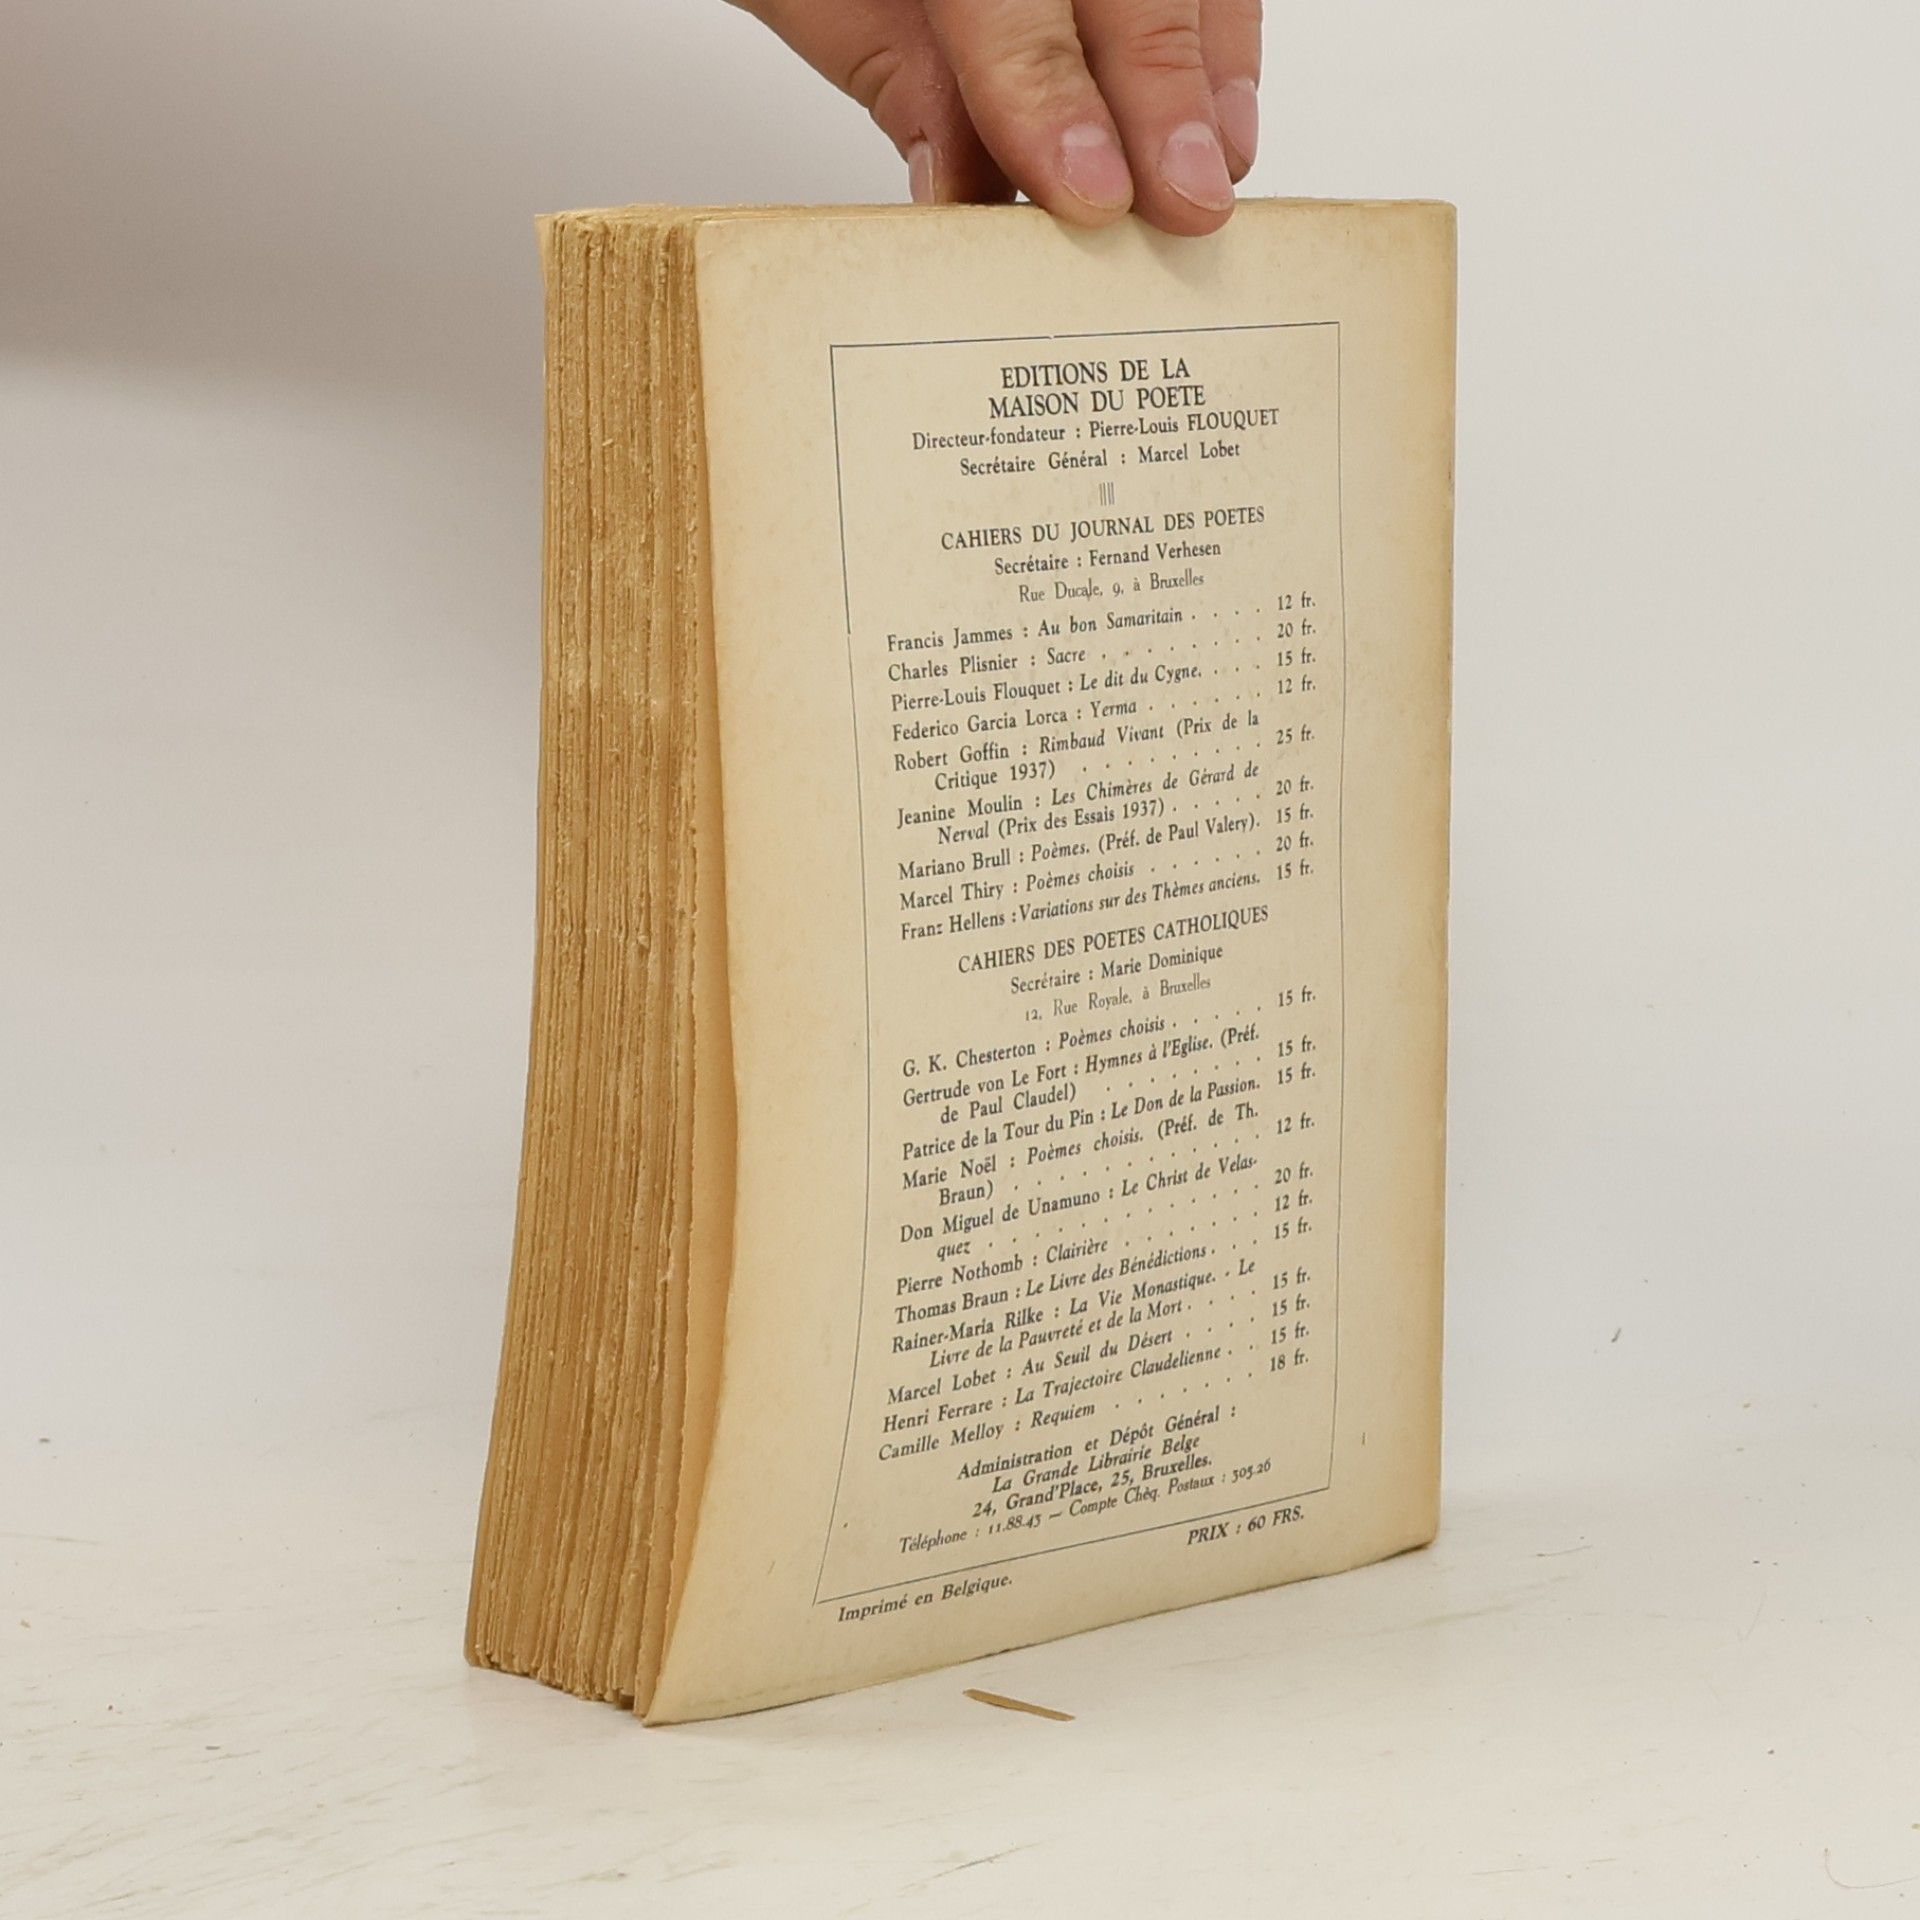 EDITIONS DE LA
MAISON DU POETE
Directeur-fondateur : Pierre-Louis FLOUQUET
Secrétaire Général : Marcel Lobet
CAHIERS DU JOURNAL DES POETES
Secrétaire : Fernand Verhesen
Rue Ducale, 9, à Bruxelles
Francis Jammes : Au bon Samaritain . . . . 12 fr.
Charles Plisnier : Sacre . . . . . . . 20 fr.
Pierre-Louis Flouquet : Le dit du Cygne. . . . 15 fr.
Federico Garcia Lorca : Yerma . . . . . . 12 fr.
Robert Goffin : Rimbaud Vivant (Prix de la
Critique 1937) . . . . . . . 25 fr.
Jeanine Moulin : Les Chimères de Gérard de
Nerval (Prix des Essais 1937) . . . . . 20 fr.
Mariano Brull : Poèmes. (Préf. de Paul Valery). 15 fr.
Marcel Thiry : Poèmes choisis . . . . . . 20 fr.
Franz Hellens : Variations sur des Thèmes anciens. 15 fr.
CAHIERS DES POETES CATHOLIQUES
Secrétaire : Marie Dominique
12, Rue Royale, à Bruxelles
G. K. Chesterton : Poèmes choisis . . . . . 15 fr.
Gertrude von Le Fort : Hymnes à l'Eglise. (Préf.
de Paul Claudel) . . . . . . . 15 fr.
Patrice de la Tour du Pin : Le Don de la Passion. 15 fr.
Marie Noël : Poèmes choisis. (Préf. de Th.
Braun) . . . . . . . . . . 12 fr.
Don Miguel de Unamuno : Le Christ de Velas-
quez . . . . . . . . . . 20 fr.
Pierre Nothomb : Clairière . . . . . . . 12 fr.
Thomas Braun : Le Livre des Bénédictions . . . 15 fr.
Rainer-Maria Rilke : La Vie Monastique. - Le
Livre de la Pauvreté et de la Mort . . . . 15 fr.
Marcel Lobet : Au Seuil du Désert . . . . 15 fr.
Henri Ferrare : La Trajectoire Claudelienne . . 15 fr.
Camille Melloy : Requiem . . . . . . . 18 fr.
Administration et Dépôt Général :
La Grande Librairie Belge
24, Grand'Place, 25, Bruxelles.
Téléphone : 11.88.43 — Compte Chèq. Postaux : 305.26
Imprimé en Belgique. PRIX : 60 FRS.